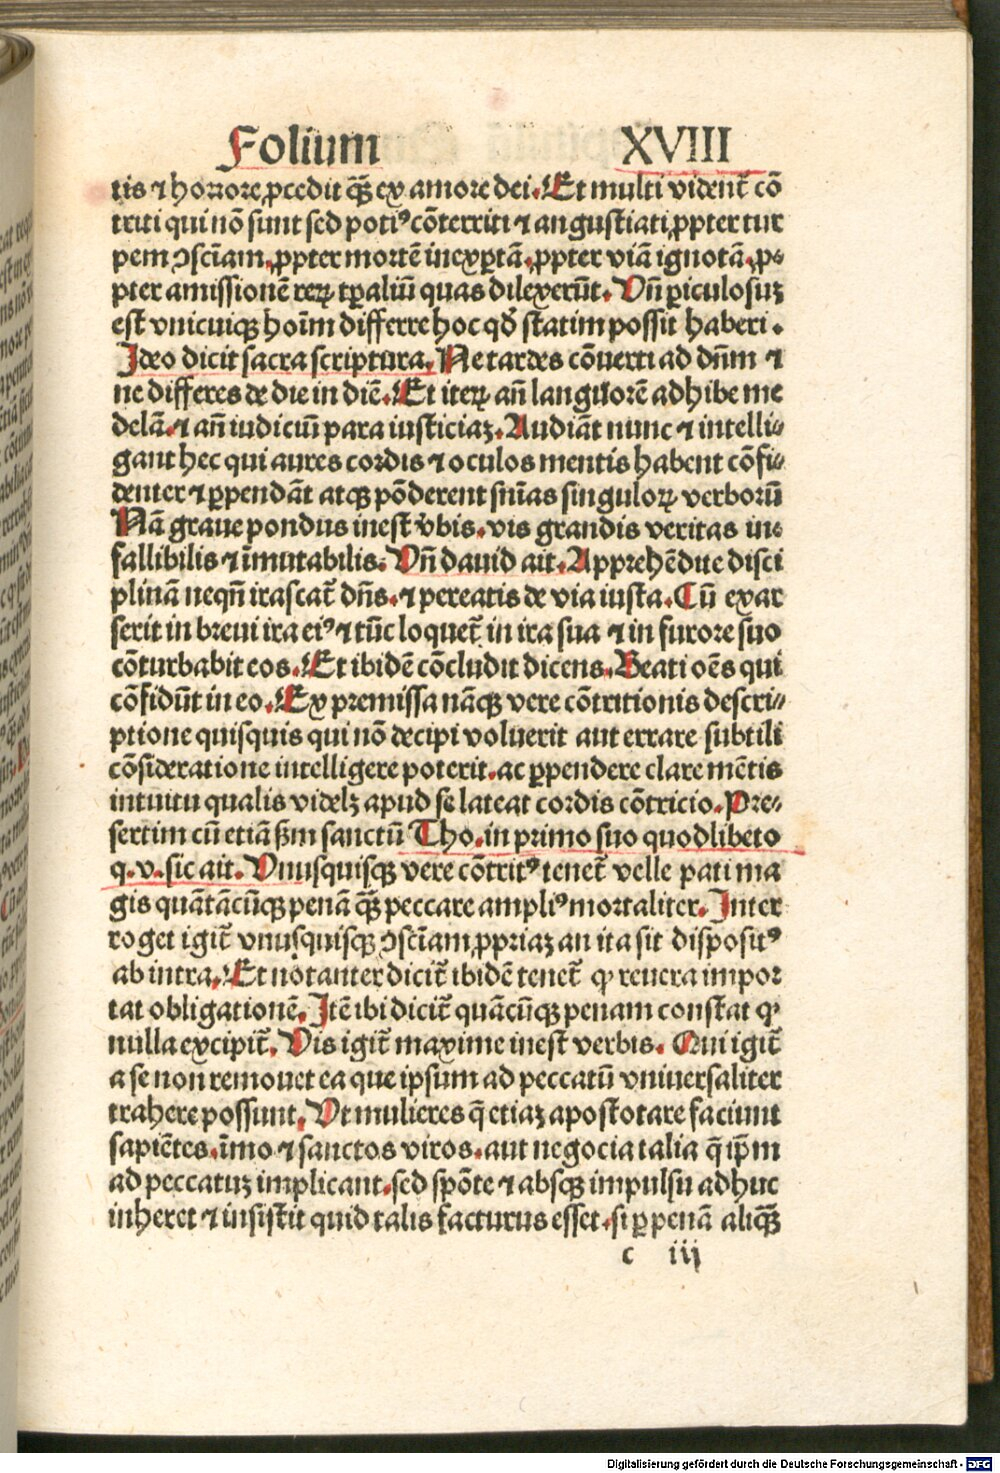 Folium XVIII
tis ⁊ horrore ꝓcedit qȝ̄ ex amore dei. Et multi vident̄ cō
triti qui nō sunt sed potiꝰ cōterriti ⁊ angustiati ꝓpter tur
pem ꝯsciam, ꝓpter mortē inexꝑtā, ꝓpter viā ignotā, ꝓ⸗
pter amissionē reꝝ tꝑaliū quas dilexerūt. Vn̄ ꝑiculosuȝ
est vnicuiqȝ hoīm differre hoc qđ statim possit haberi.
Ideo dicit sacra scriptura. Ne tardes cōuerti ad dn̄m ⁊
ne differes de die in diē. Et iteꝝ an̄ languorē adhibe me
delā. ⁊ an̄ iudiciū para iusticiaȝ. Audiāt nunc ⁊ intelli⸗
gant hec qui aures cordis ⁊ oculos mentis habent cōfi⸗
denter ⁊ ꝑpendāt atqȝ pōderent sn̄ias singuloꝝ verborū
Nā graue pondus inest v̄bis. vis grandis veritas in⸗
fallibilis ⁊ īmutabilis. Vn̄ dauid ait. Apprehēdite disci
plinā neqn̄ irascat̄ dn̄s. ⁊ pereatis de via iusta. Cū exar
serit in breui ira eiꝰ ⁊ tūc loquet̄ in ira sua ⁊ in furore suo
cōturbabit eos. Et ibidē cōcludit dicens. Beati oēs qui
cōfidūt in eo. Ex premissa nāqȝ vere cōtritionis descri⸗
ptione quisquis qui nō decipi voluerit aut errare subtili
cōsideratione intelligere poterit. ac ꝑpendere clare mētis
intuitu qualis videlȝ apud se lateat cordis cōtricio. Pre⸗
sertim cū etiā ẜm sanctū Tho. in primo suo quodlibeto
q. v. sic ait. Vnusquisqȝ vere cōtritꝰ tenet̄ velle pati ma
gis quātācūqȝ penā qȝ̄ peccare ampliꝰ mortaliter. Inter
roget igit̄ vnusquisqȝ ꝯsciam ꝓpriaȝ an ita sit dispositꝰ
ab intra. Et notanter dicit̄ ibidē tenet̄ ꝙ reuera impor
tat obligationē. Itē ibi dicit̄ quācūqȝ penam constat ꝙ
nulla excipit̄. Vis igit̄ maxime inest verbis. Qui igit̄
a se non remouet ea que ipsum ad peccatū vniuersaliter
trahere possunt. Vt mulieres q̄ etiaȝ apostotare faciunt
sapiētes. īmo ⁊ sanctos viros. aut negocia talia q̄ ip̄m
ad peccatuȝ implicant. sed spōte ⁊ absqȝ impulsu adhuc
inheret ⁊ insistit quid talis facturus esset. si ꝑ penā aliqȝ̄
c iii
Digitalisierung gefördert durch die Deutsche Forschungsgemeinschaft - DFG